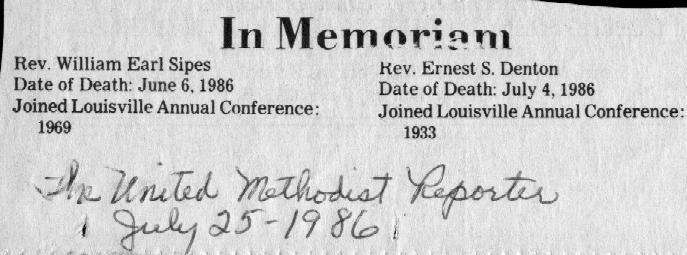 In Memoriam
Rev. William Earl Sipes
Date of Death: June 6, 1986
Joined Louisville Annual Conference:
1969
Rev. Ernest S. Denton
Date of Death: July 4, 1986
Joined Louisville Annual Conference:
1933
The United Methodist Reporter
July 25-1986